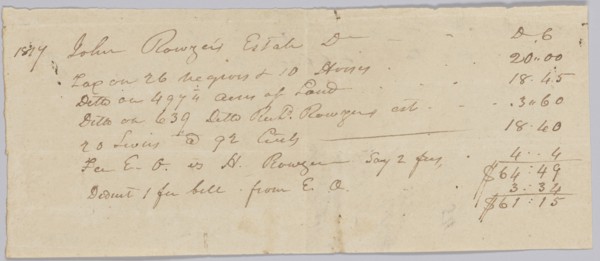 1819 John Rowzer's Estate Dr D. C
Tax on 26 negroes & 10 Horses 20.00
Ditto on 497¼ acres of Land 18.45
Ditto on 639 Ditto Rowzers est 3.60
20 @ 92 Cents 18.40
Fee E. O. vs H. Rowzer Say 2 fees, 4..4
$64:49
1 fee bill from E O. 3:34
$61:15